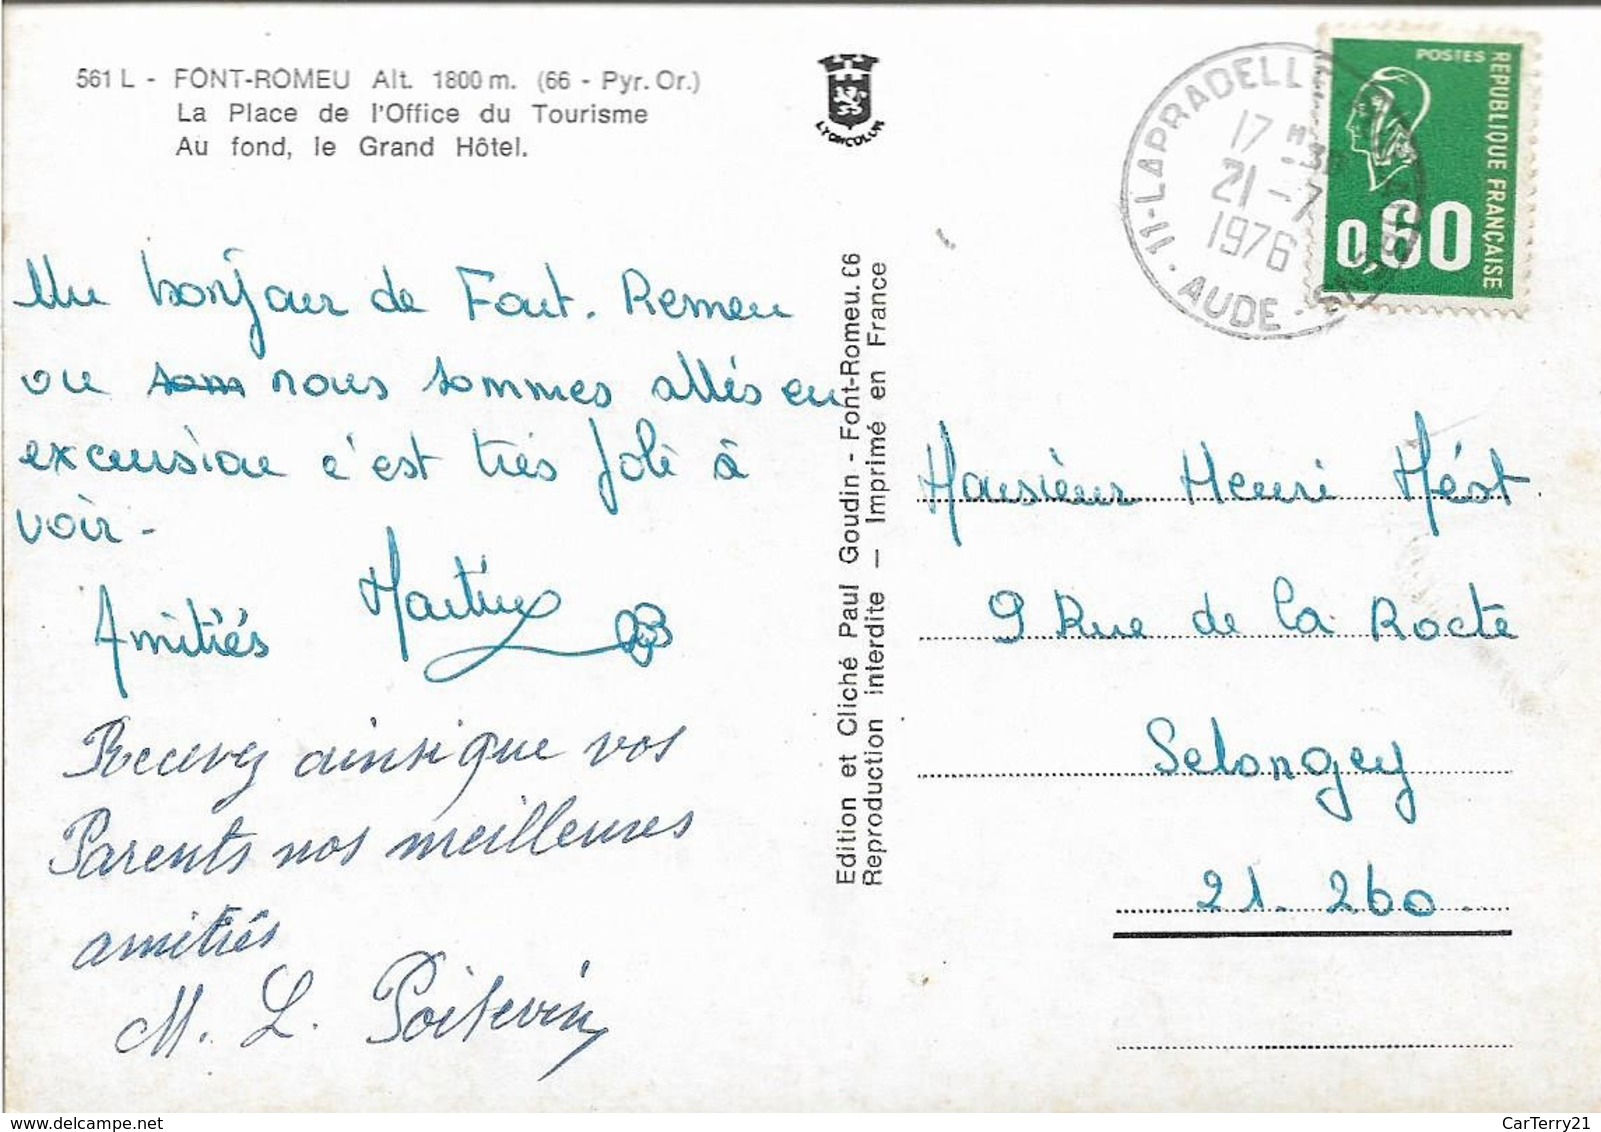 561 L - FONT-ROMEU Alt. 1800 m. (66 - Pyr. Or.)
La Place de l'Office du Tourisme
Au fond, le Grand Hôtel.
LYONCOLOR
11-LAPRADELLE
17 H 30
21 - 7
1976
AUDE
POSTES
REPUBLIQUE FRANÇAISE
0,60
Un bonjour de Font. Romeu
ou som nous sommes allés en
excursion c'est très joli à
voir -
Amitiés Martine
Recevez ainsi que vos
Parents nos meilleures
amitiés
M. L. Poitevin
Edition et Cliché Paul Goudin - Font-Romeu. C6
Reproduction interdite — Imprimé en France
Monsieur Henri
9 Rue de la
Selongey
21. 260
CarTerry21